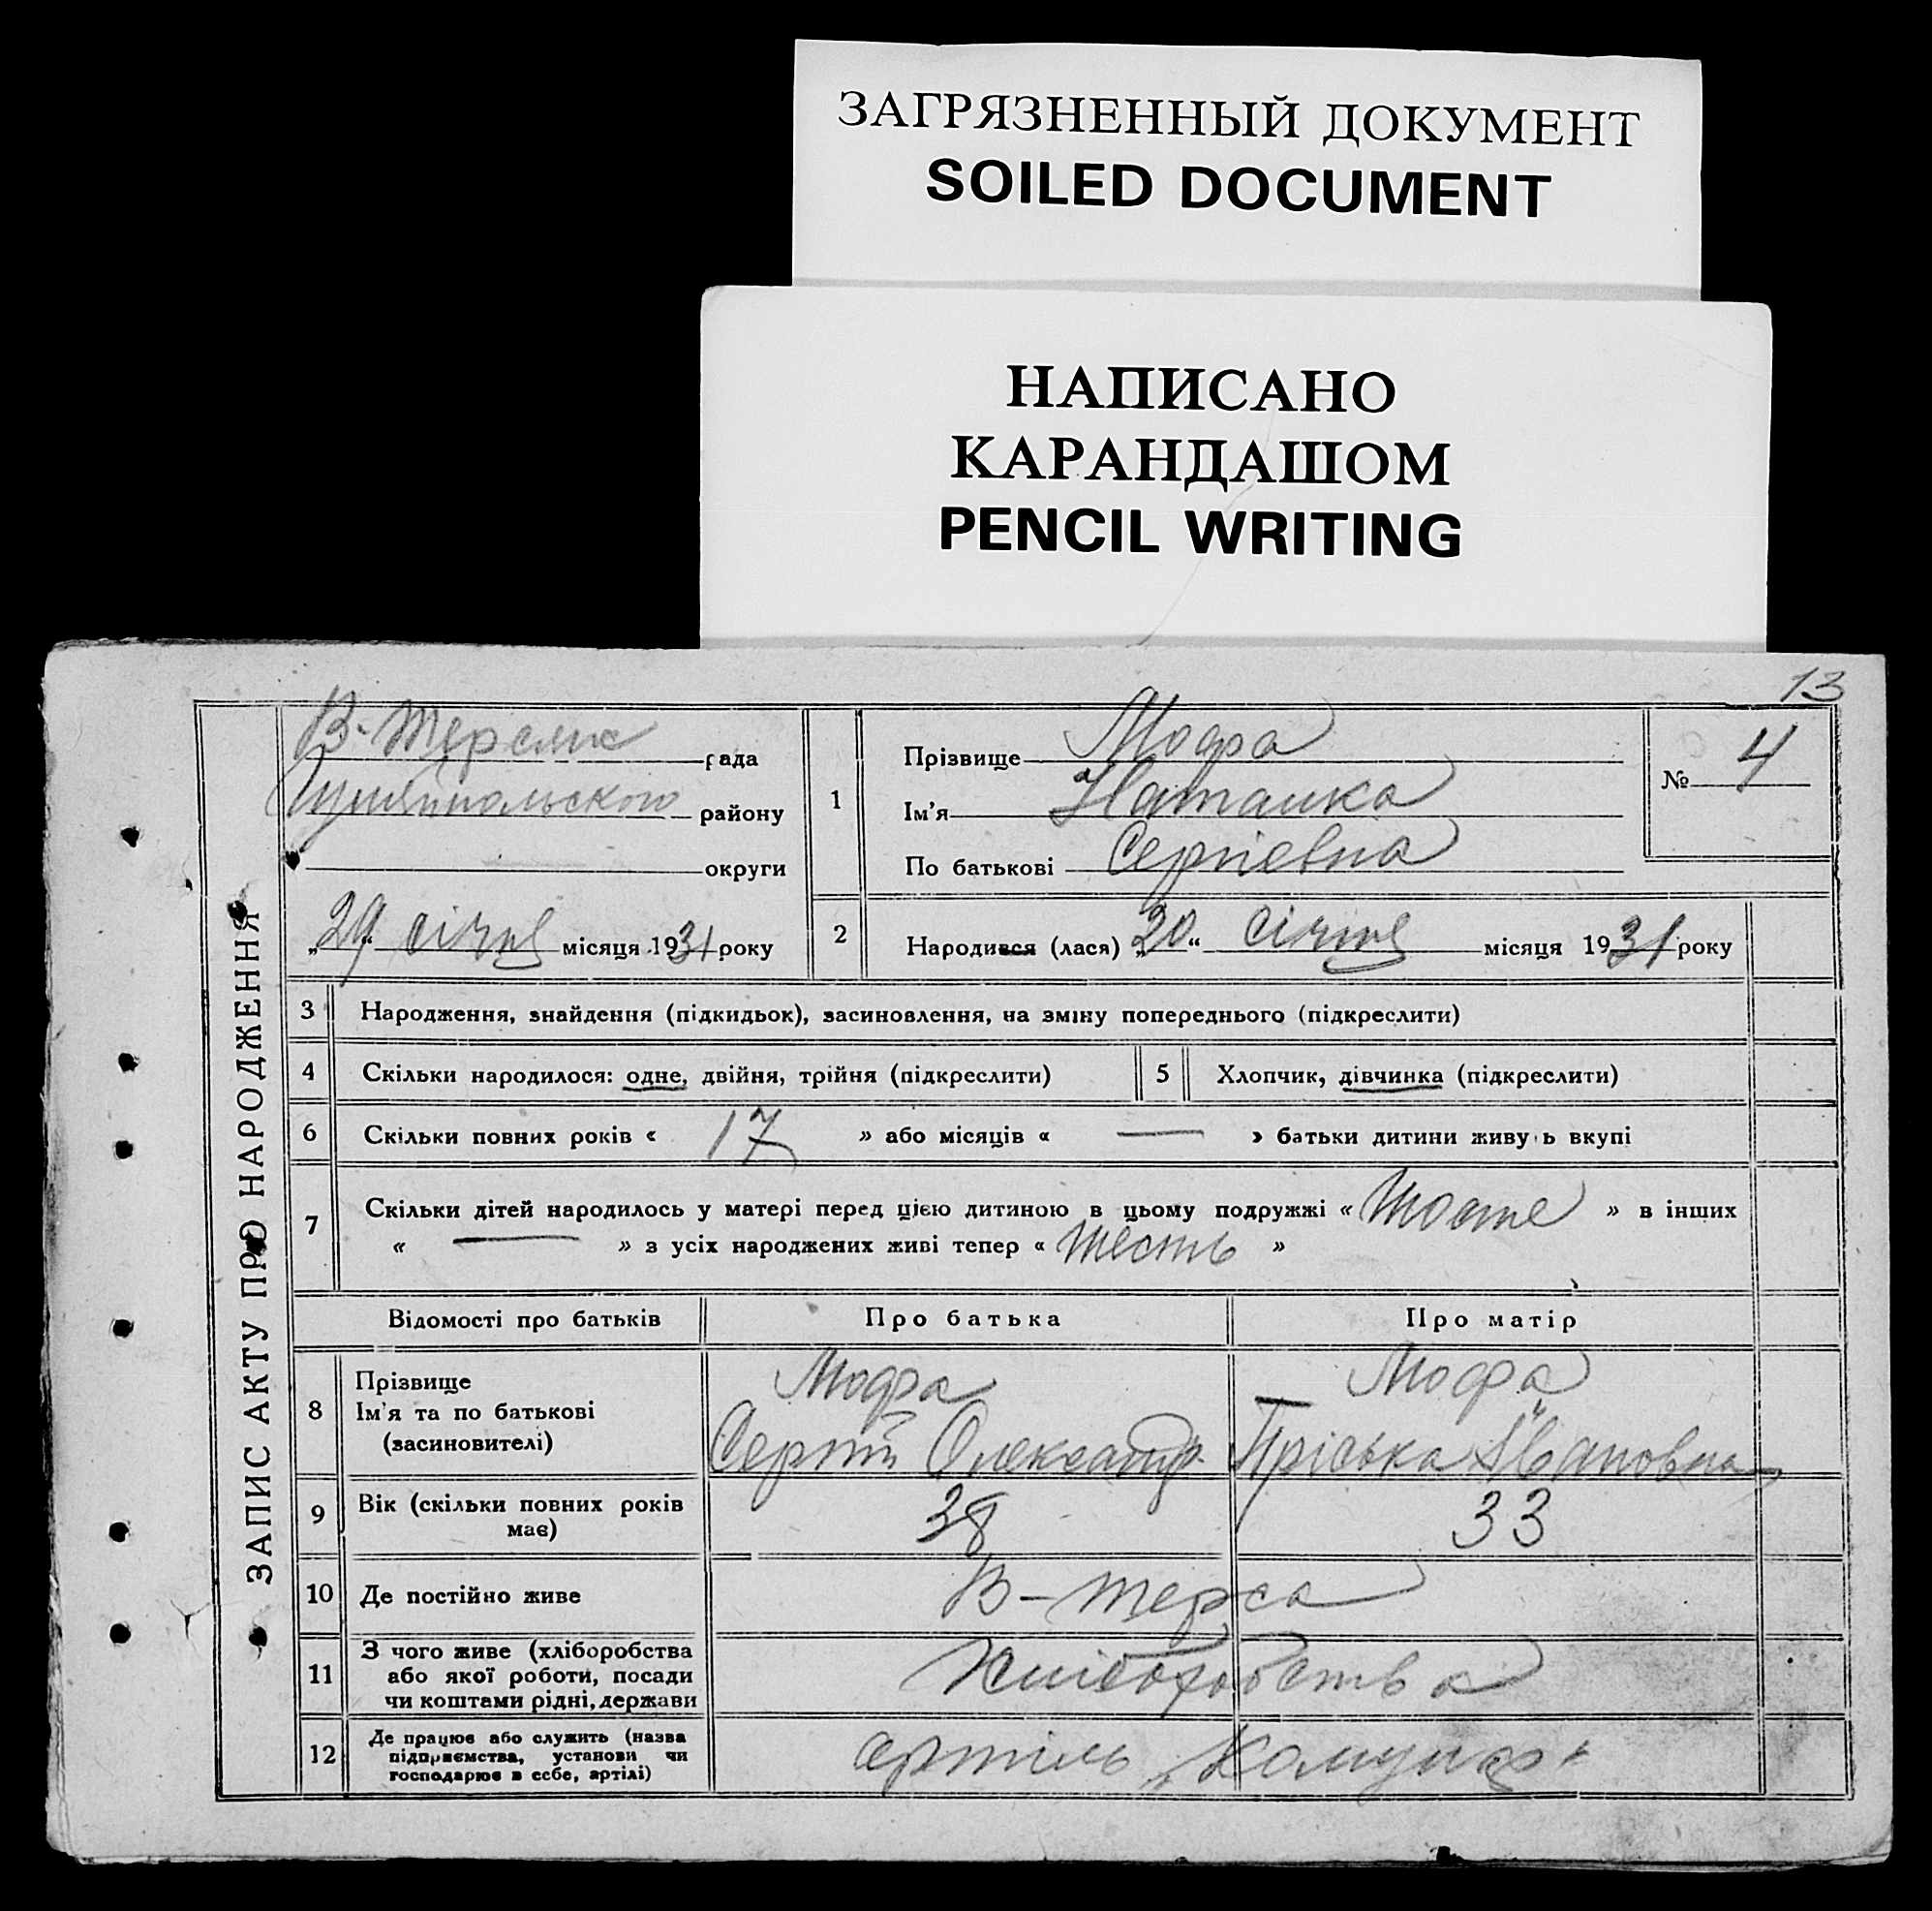 ЗАГРЯЗНЕННЫЙ ДОКУМЕНТ
SOILED DOCUMENT
НАПИСАНО
КАРАНДАШОМ
PENCIL WRITING
13
ЗАПИС АКТУ ПРО НАРОДЖЕННЯ
В-Терсянс рада
Гуляйпольского району
округи
„29“ січня місяця 1931 року
1
Прізвище Мофа
Ім'я Наталка
По батькові Сергіевна
№ 4
2
Народився (лася) „20“ січня місяця 1931 року
3 Народження, знайдення (підкидьок), засиновлення, на зміну попереднього (підкреслити)
4 Скільки народилося: одне, двійня, трійня (підкреслити)
5 Хлопчик, дівчинка (підкреслити)
6 Скільки повних років « 17 » або місяців « — » батьки дитини живуть вкупі
7 Скільки дітей народилось у матері перед цією дитиною в цьому подружжі « Шосте » в інших
« — » з усіх народжених живі тепер « Шесть »
Відомості про батьків Про батька Про матір
8 Прізвище
Ім'я та по батькові
(засиновителі)
Мофа
Сергій Олександр.
Мофа
Пріська Івановна
9 Вік (скільки повних років
має)
38 33
10 Де постійно живе В-Терса
11 З чого живе (хліборобства
або якої роботи, посади
чи коштами рідні, держави
Хліборобства
12 Де працює або служить (назва
підприємства, установи чи
господарює в себе, артілі)
артіль